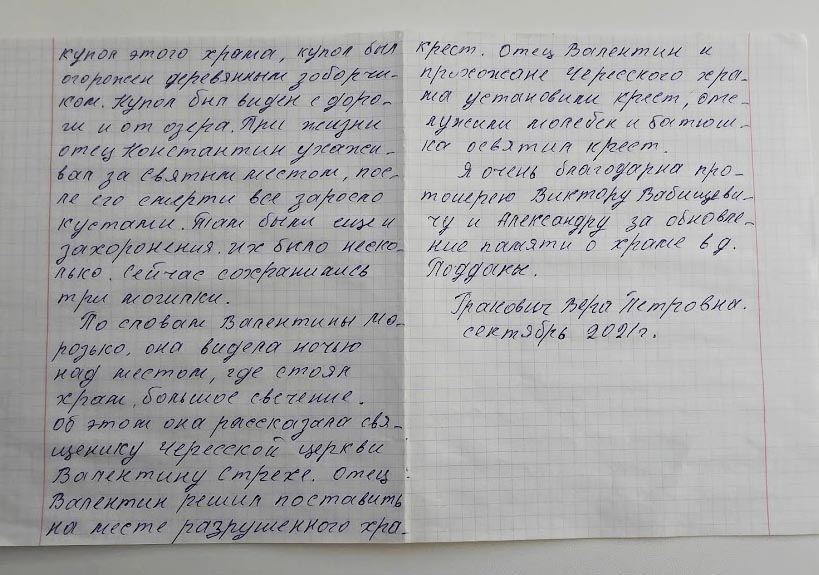 купол этого храма, купол был
огорожен деревянным заборчи-
ком. Купол был виден с доро-
ги и от озера. При жизни
отец Константин ухажи-
вал за святым местом, пос-
ле его смерти все заросло
кустами. Там были еще и
захоронения. их было неско-
лько. Сейчас сохранились
три могилки.
По словам Валентины Мо-
розько, она видела ночью
над местом, где стоял
храм, большое свечение.
Об этом она рассказала свя-
щенику Чересской церкви
Валентину Стрехе. Отец
Валентин решил поставить
на месте разрушенного хра-
крест. Отец Валентин и
прихожане Чересского хра-
ма установили крест, отс-
лужили молебен и батюш-
ка освятил крест.
Я очень благодарна про-
тоиерею Виктору Вабищеви-
чу и Александру за обновле-
ние памяти о храме в д.
Поддакы.
Гранович Вера Петровна.
сентябрь 2021г.